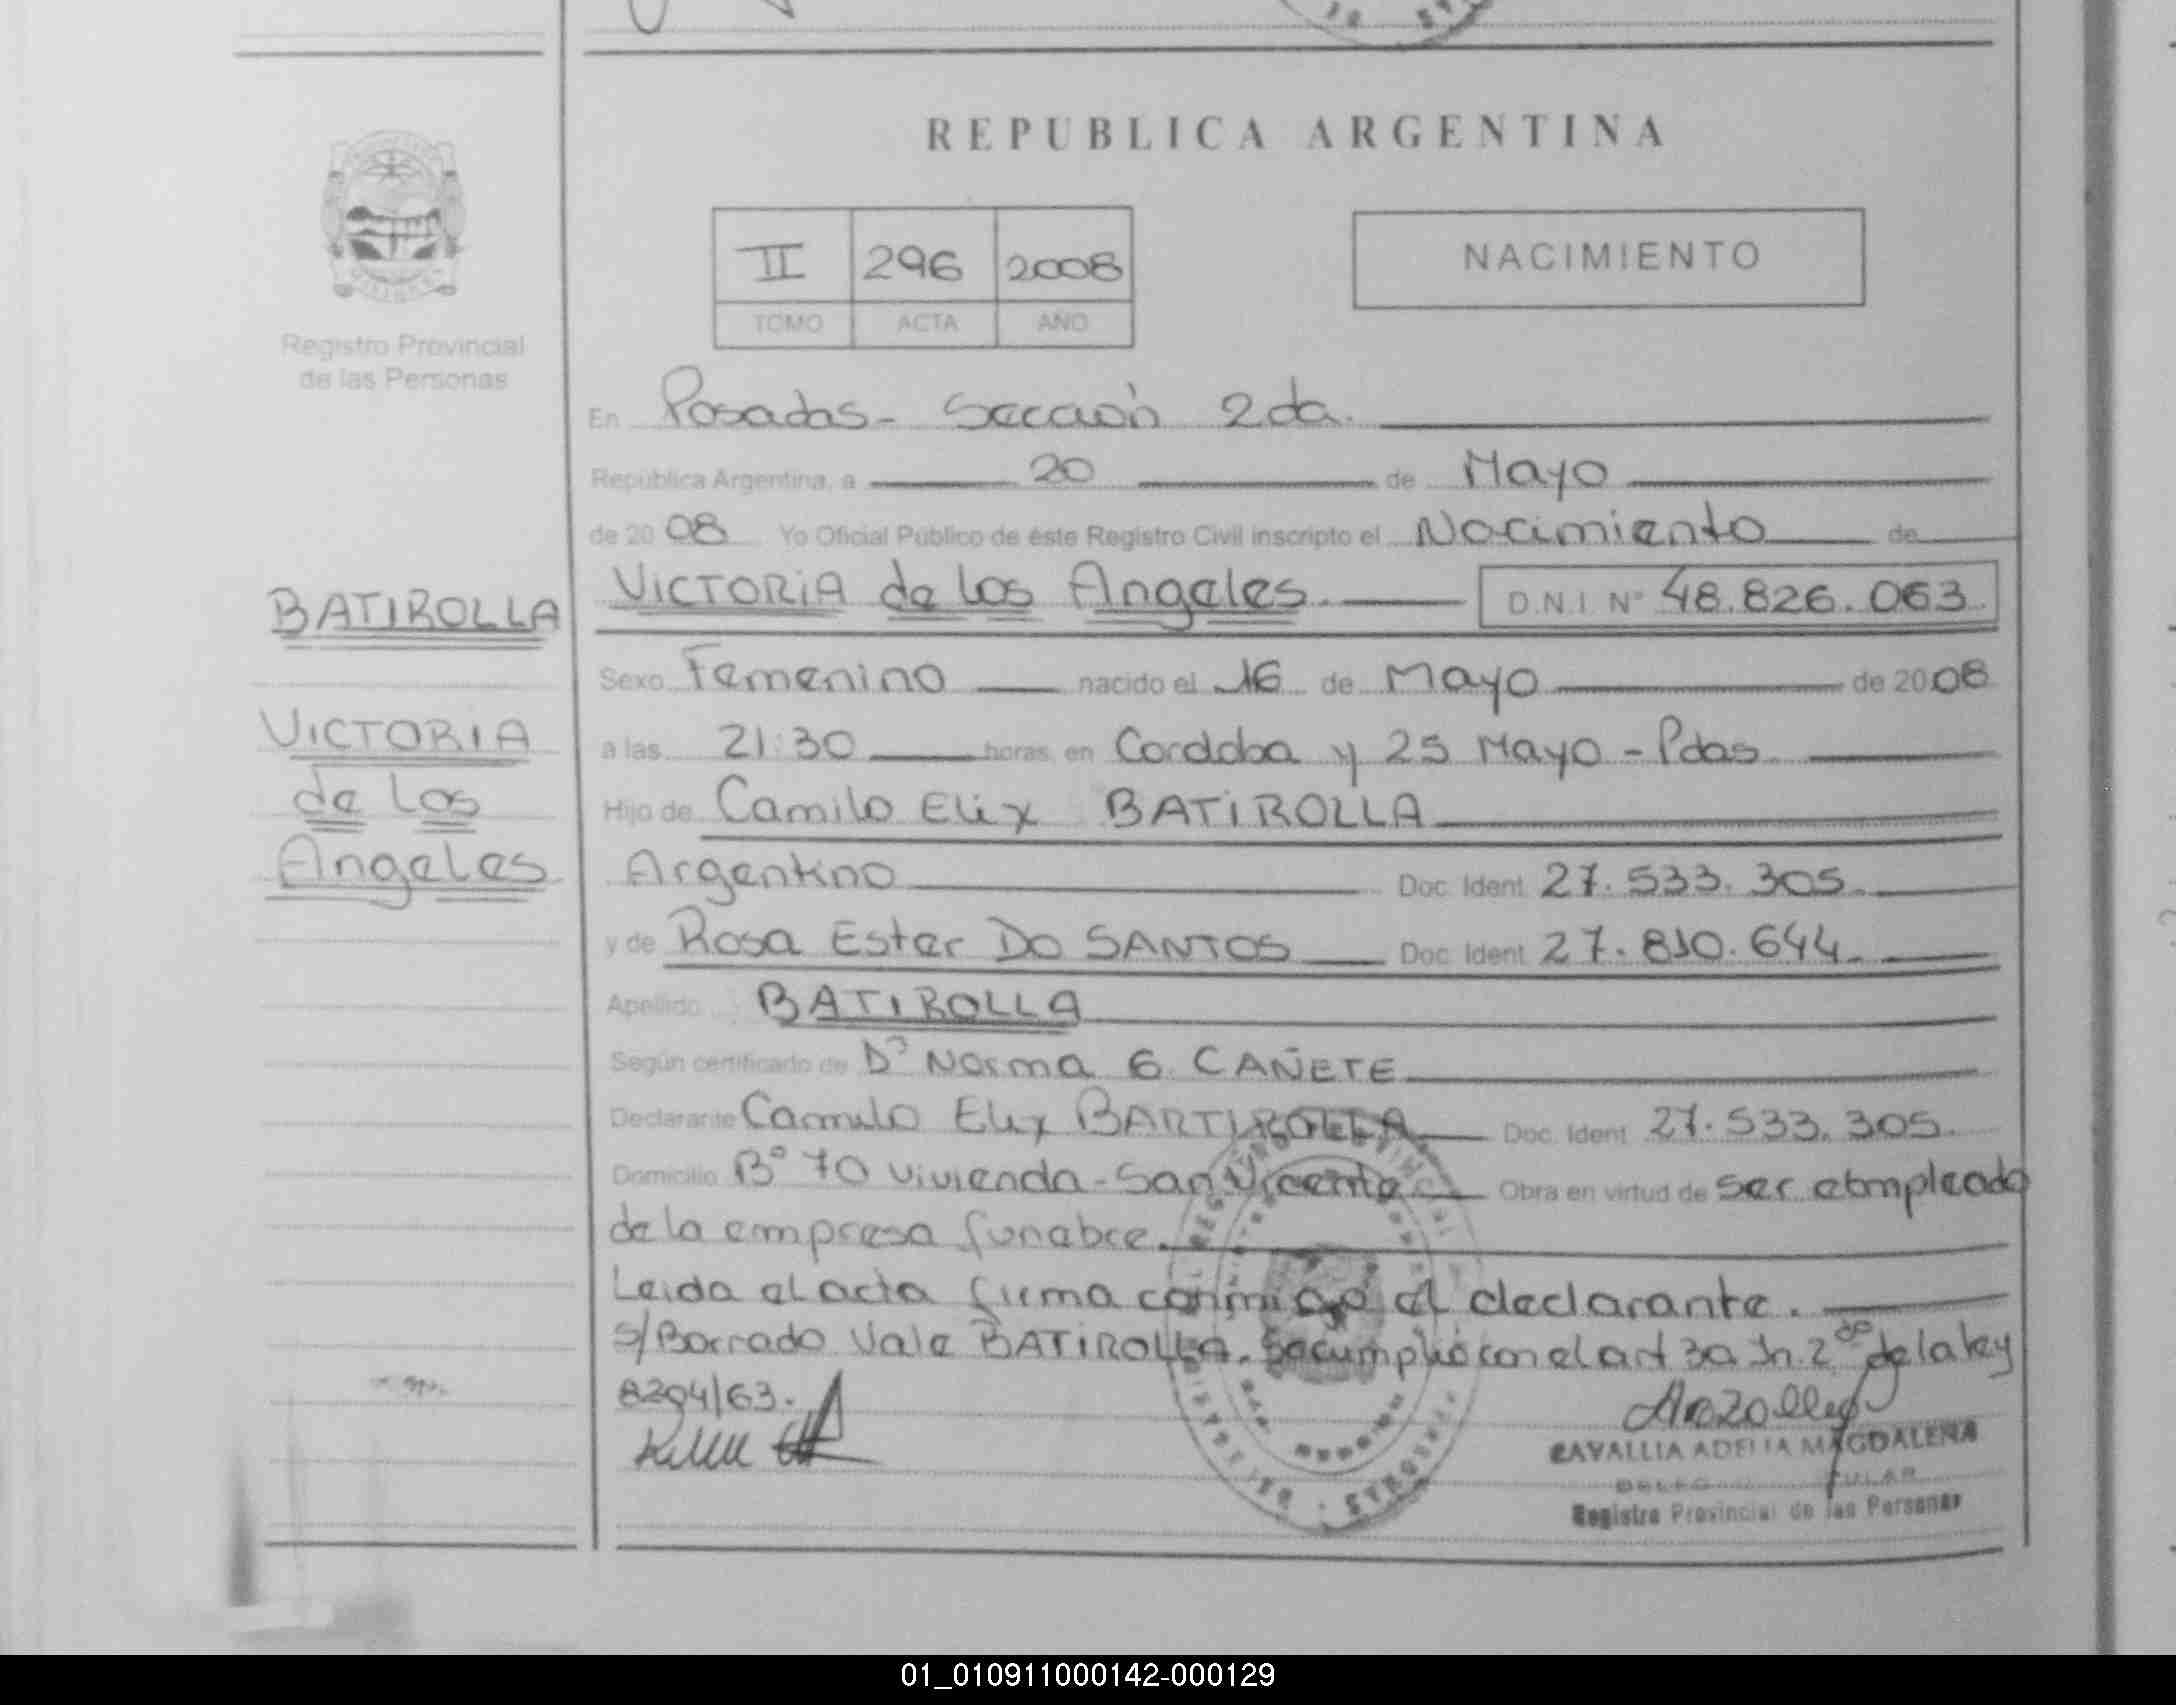 REPUBLICA ARGENTINA
II 296 2008
TOMO ACTA AÑO
NACIMIENTO
Registro Provincial
de las Personas
En Posadas - Sección 2da.
República Argentina, a 20 de Mayo
de 2008 Yo Oficial Público de éste Registro Civil inscripto el Nacimiento de
BATIROLLA
VICTORIA de los Angeles. D.N.I. Nº 48.826.063
Sexo Femenino nacido el 16 de Mayo de 2008
VICTORIA
de Los
Angeles
a las 21:30 horas, en Cordoba y 25 Mayo - Pdas
Hijo de Camilo Elix BATIROLLA
Argentino Doc. Ident. 27.533.305
y de Rosa Ester DO SANTOS Doc. Ident. 27.810.644
Apellido BATIROLLA
Según certificado de Dª Norma G. CAÑETE
Declarante Camilo Elix BARTIROLLA Doc. Ident. 27.533.305.
Domicilio Bº 70 vivienda - San Vicente Obra en virtud de ser empleado
de la empresa funebre.
Leida el acta firma conmigo el declarante.
s/Borrado Vale BATIROLLA. Se cumplió con el art 30 In. 2do de la ley
8204/63.
CAVALLIA ADELIA MAGDALENA
Registro Provincial de las Personas
01_010911000142-000129